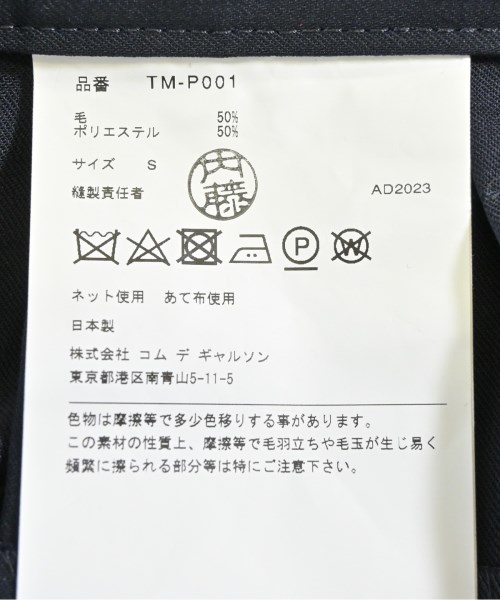 品番 TM-P001
毛 50%
ポリエステル 50%
サイズ S
内藤
縫製責任者 AD2023
P W
ネット使用 あて布使用
日本製
株式会社 コム デ ギャルソン
東京都港区南青山5-11-5
色物は摩擦等で多少色移りする事があります。
この素材の性質上、摩擦等で毛羽立ちや毛玉が生じ易く
頻繁に擦られる部分等は特にご注意下さい。